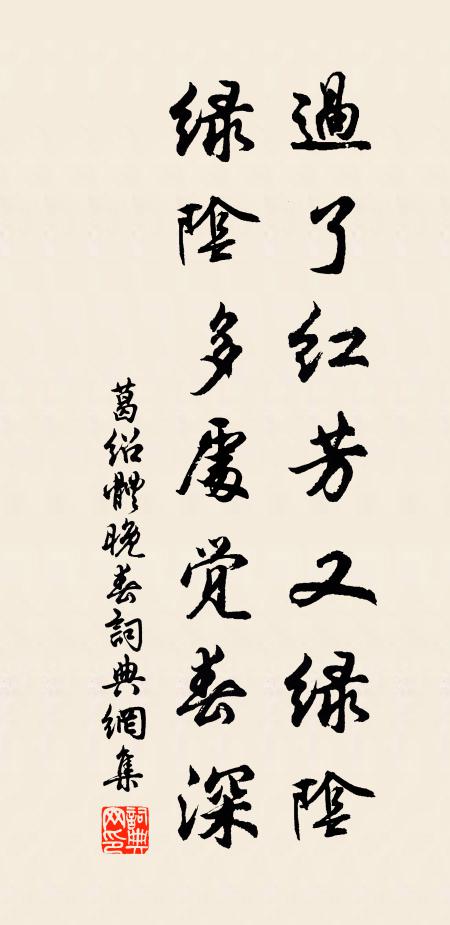 過了红芳又緑陰
緑陰多處觉春深
葛绍體晚春詞典網集
詞典網印